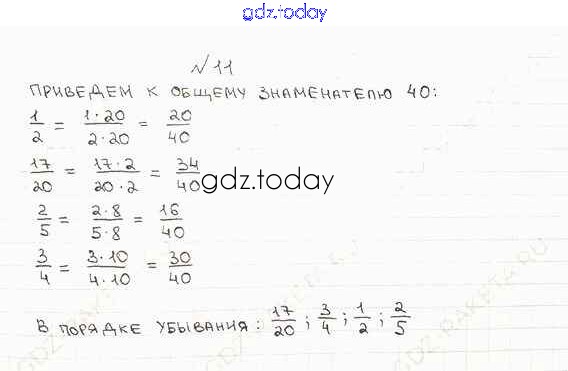 gdz.today
№11
ПРИВЕДЕМ К ОБЩЕМУ ЗНАМЕНАТЕЛЮ 40:
1/2 = 1·20/2·20 = 20/40
17/20 = 17·2/20·2 = 34/40
gdz.today
2/5 = 2·8/5·8 = 16/40
3/4 = 3·10/4·10 = 30/40
В ПОРЯДКЕ УБЫВАНИЯ: 17/20; 3/4; 1/2; 2/5